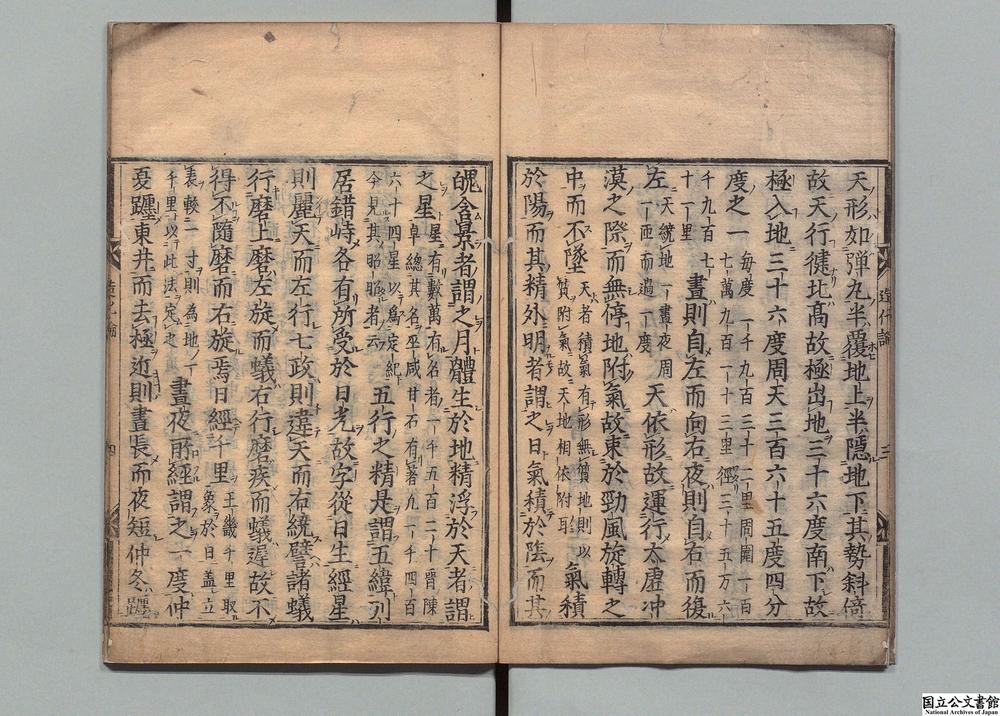 天形如彈丸半覆地上半隱地下其勢斜倚
故天行健北高故極出地三十六度南下故
極入地三十六度周天三百六十五度四分
度之一每度一千九百三十二里周圍一百
七萬九百一十三里徑三十五万六
千九百七
十一里晝則自左而向右夜則自右而復
左天繞地一晝夜周
一匝而過一度天依形故運行太虛冲
漠之際而無停地附氣故束於勁風旋轉之
中而不墜天者積氣有形無質地則以
質附氣故天地相依附耳氣積
於陽而其精外明者謂之日氣積於陰而其
魄含景者謂之月體生於地精浮於天者謂
之星星有數萬有名者一千五百二十晉陳
卓總其名巫咸甘石有著九一千四百
六十四星以為定紀
今見其昭昭者云五行之精是謂五緯列
居錯峙各有所受於日光故字從日生經星
則麗天而左行七政則違天而右繞譬諸蟻
行磨上磨左旋而蟻右行磨疾而蟻遲故不
得不隨磨而右旋焉日經千里王畿千里取
象於日蓋立
表較一寸則為地
千里以此法定之晝夜所經謂之一度仲
夏躔東井而去極近則晝長而夜短仲冬躔
三
四
国立公文書館
National Archives of Japan